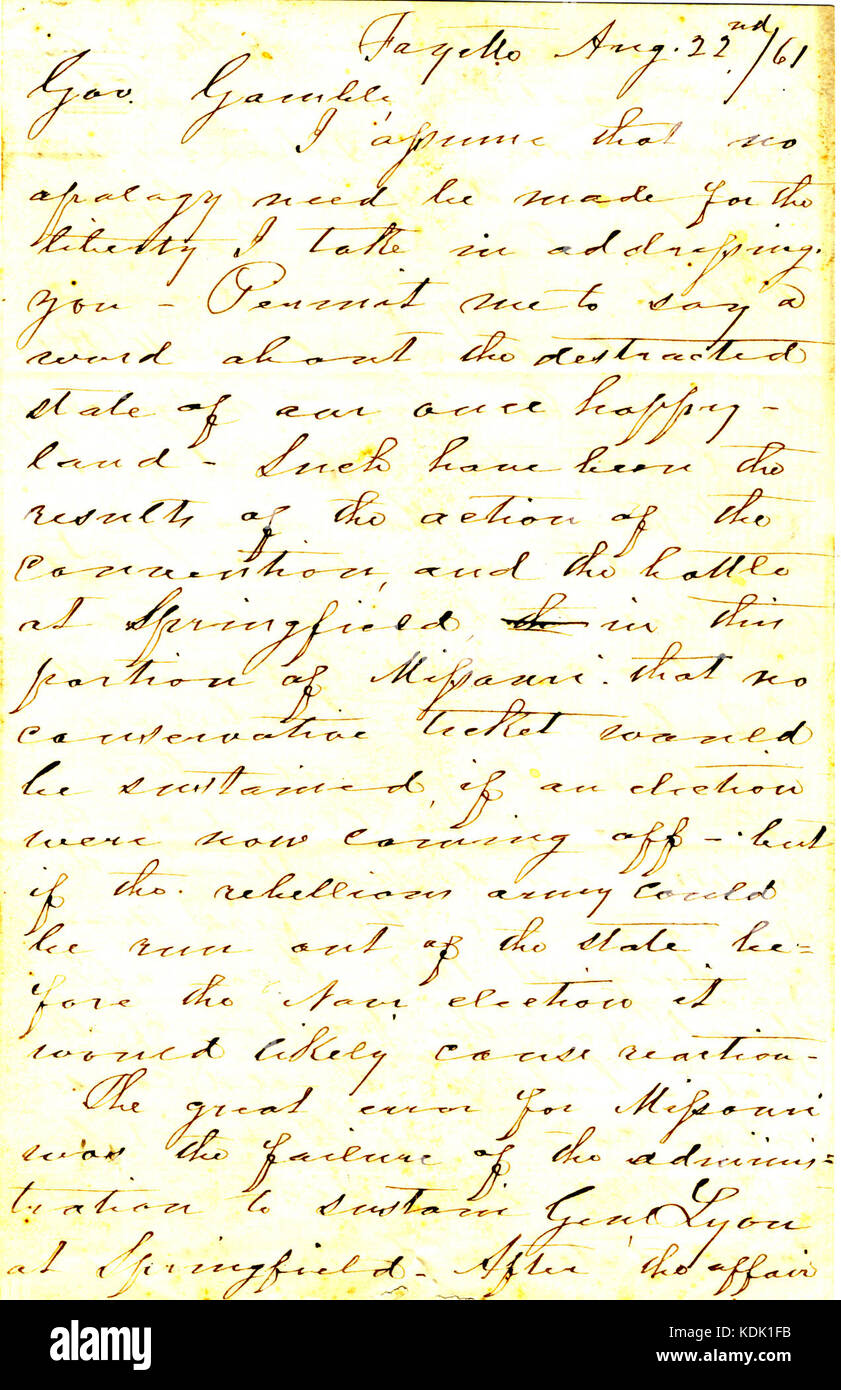 Fayette Aug. 22nd/61
Gov. Gamble,
I assume that no
apology need be made for the
liberty I take in addressing
you - Permit me to say a
word about the destracted
state of our once happy-
land - Such have been the
results of the action of the
convention, and the battle
at Springfield, in this
portion of Missouri. that no
conservative ticket would
be sustained, if an election
were now coming off - but
if the rebellious army could
be run out of the state be=
fore the Nov. election it
would likely cause reaction -
The great error for Missouri
was the failure of the adminis=
tration to sustain Genl Lyon
at Springfield - After the affair
alamy
Image ID: KDK1FB
www.alamy.com